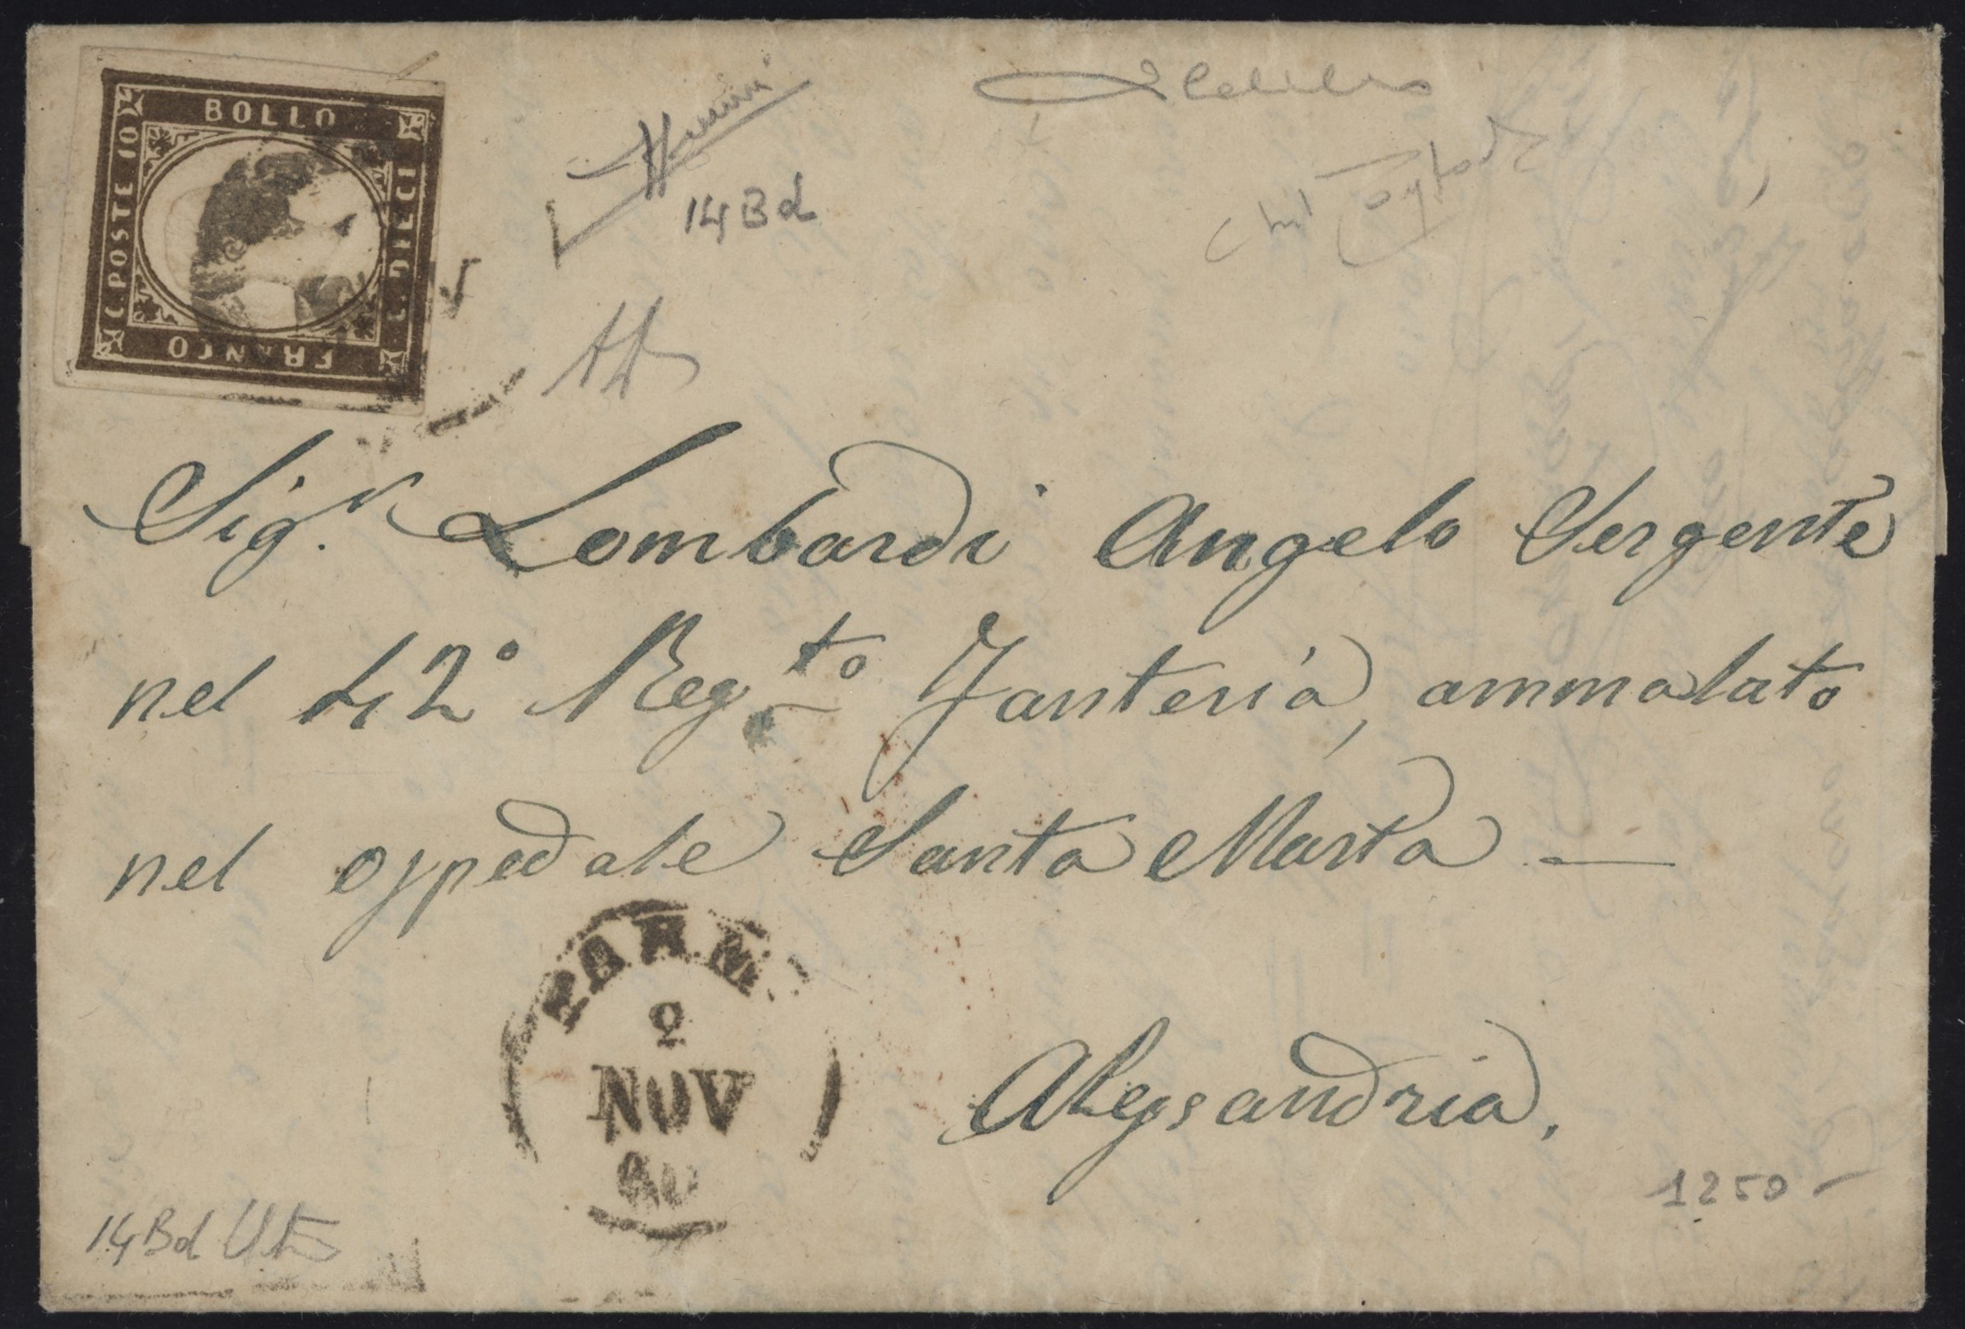 BOLLO
C. POSTE 10
C. DIECI
FRANCO
14Bd
Sig.r Lombardi Angelo Sergente
nel 42° Reg.to Fanteria, ammalato
nel ospedale Santa Marta —
PARMA
2
NOV
60
Alessandria.
14Bd
1250 -